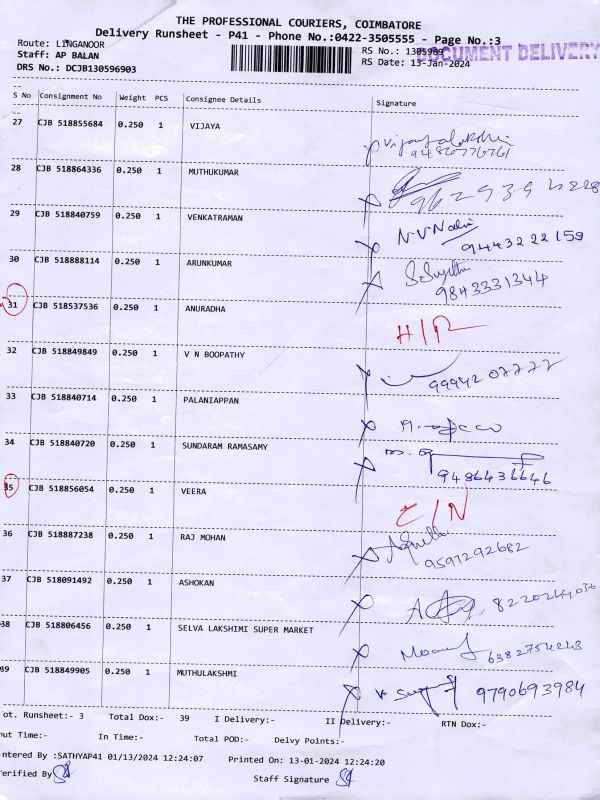 THE PROFESSIONAL COURIERS, COIMBATORE
Delivery Runsheet - P41 - Phone No.:0422-3505555 - Page No.:3
Route: LINGANOOR
RS No.: 1305969
DOCUMENT DELIVERY
Staff: AP BALAN
RS Date: 13-Jan-2024
DRS No.: DCJB130596903
S No Consignment No Weight PCS Consignee Details Signature
27 CJB 518855684 0.250 1 VIJAYA
9486776761
28 CJB 518864336 0.250 1 MUTHUKUMAR
29 CJB 518840759 0.250 1 VENKATRAMAN
9443222159
30 CJB 518888114 0.250 1 ARUNKUMAR
9843331344
31 CJB 518537536 0.250 1 ANURADHA
32 CJB 518849849 0.250 1 V N BOOPATHY
9994207777
33 CJB 518840714 0.250 1 PALANIAPPAN
34 CJB 518840720 0.250 1 SUNDARAM RAMASAMY
9486436646
35 CJB 518856054 0.250 1 VEERA
C/N
36 CJB 518887238 0.250 1 RAJ MOHAN
9597292682
37 CJB 518091492 0.250 1 ASHOKAN
38 CJB 518806456 0.250 1 SELVA LAKSHIMI SUPER MARKET
39 CJB 518849905 0.250 1 MUTHULAKSHMI
9790693984
ot. Runsheet:- 3 Total Dox:- 39 I Delivery:- II Delivery:- RTN Dox:-
ut Time:- In Time:- Total POD:- Delvy Points:-
ntered By :SATHYAP41 01/13/2024 12:24:07 Printed On: 13-01-2024 12:24:20
erified By Staff Signature